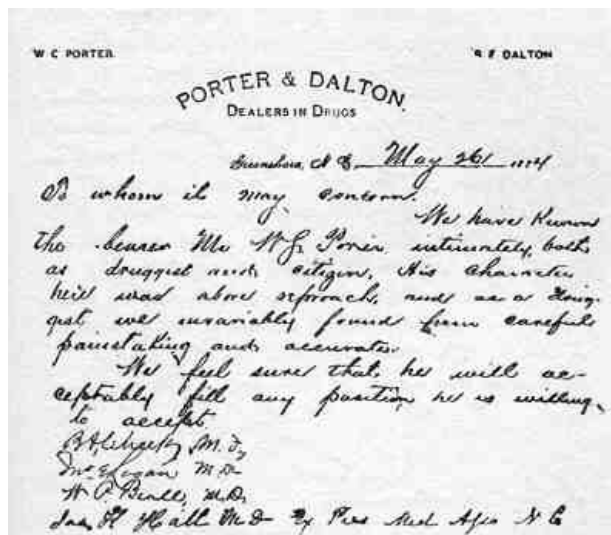 W C PORTER. R F DALTON
PORTER & DALTON.
DEALERS IN DRUGS
Greensboro, N C. May 26 1884
To whom it may concern.
We have Known
the bearer Mr W S Porter intimately, both
as druggist and citizen, His character
here was above reproach, and as a drug-
gist we invariably found him careful
painstaking and accurate.
We feel sure that he will ac-
ceptably fill any position he is willing
to accept
M. D,
Jno E Logan M D
W P Beall, M.D,
Jas K Hall M D Ex Pres Med Asso N C